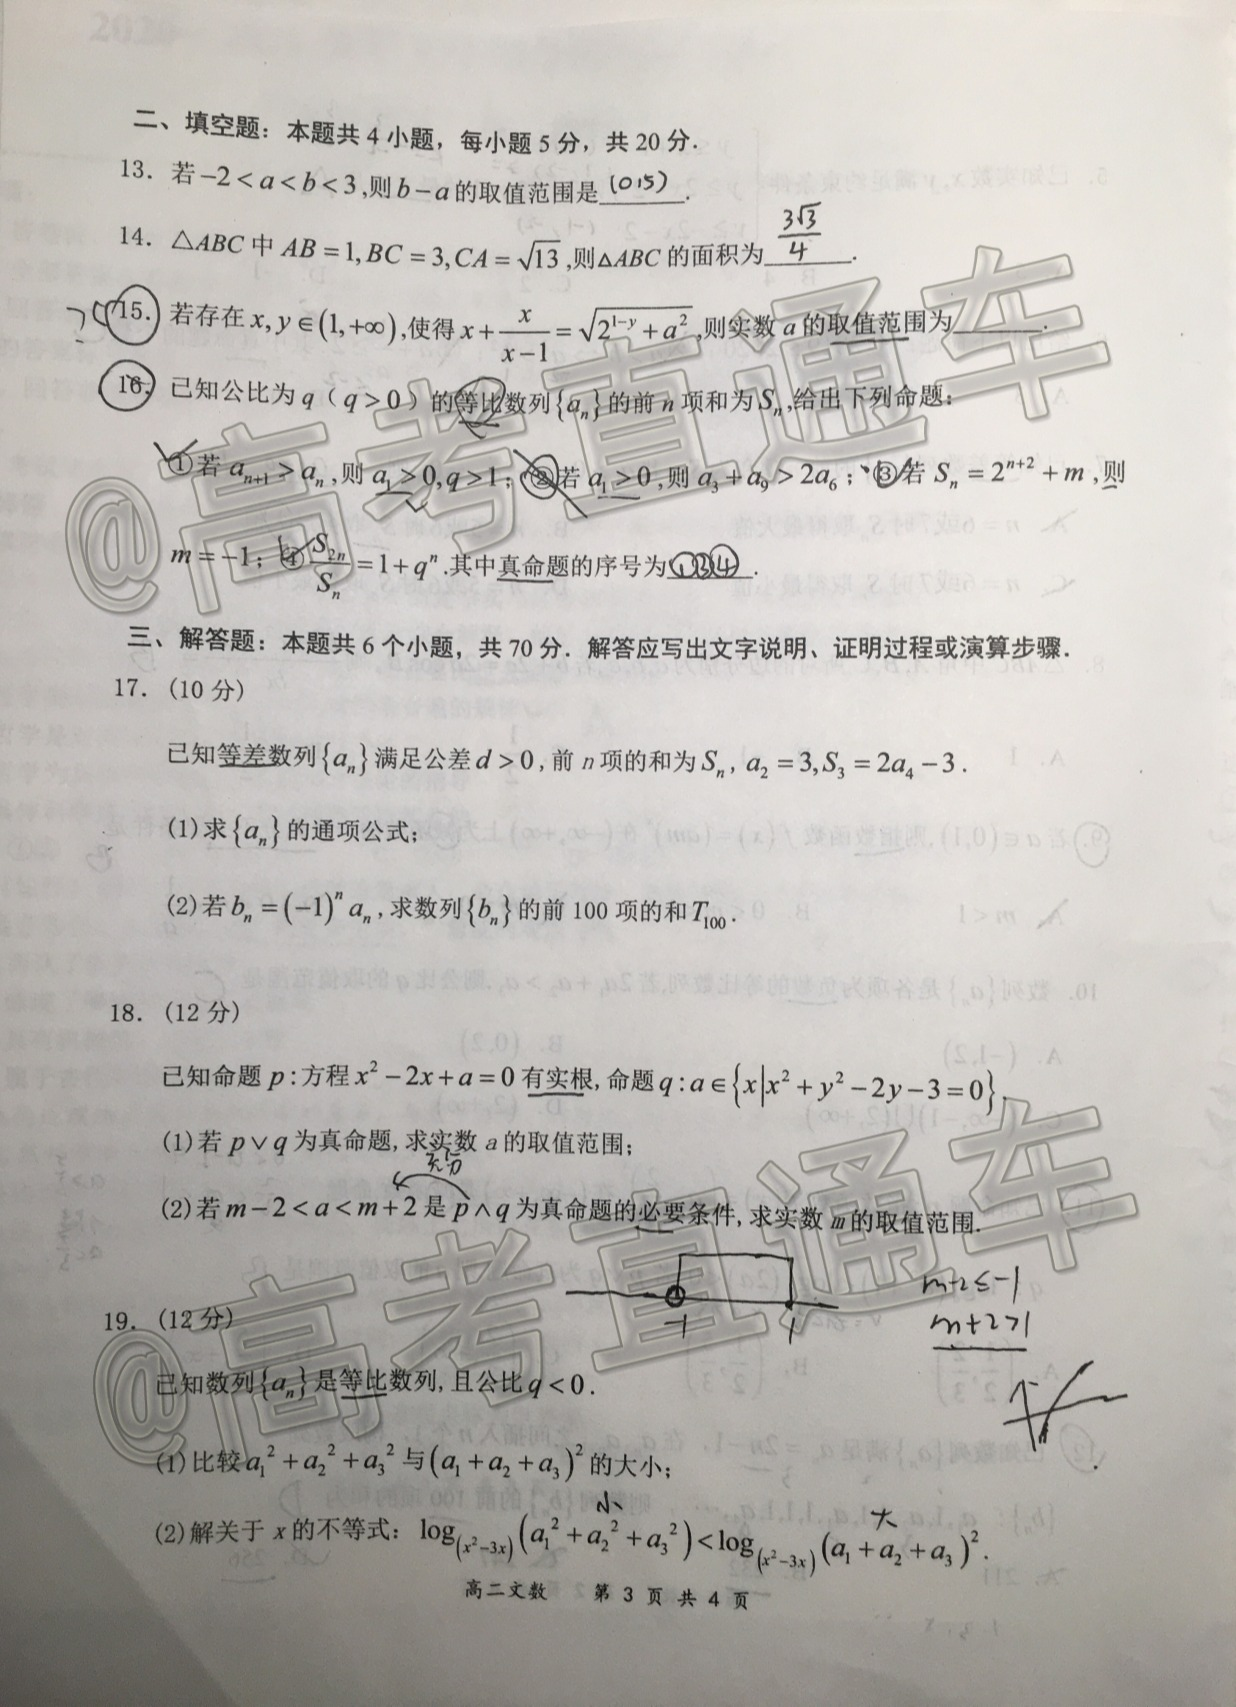 二、填空题：本题共 4 小题，每小题 5 分，共 20 分．
13. 若 -2 < a < b < 3 ,则 b - a 的取值范围是 (0,5) .
14. △ABC 中 AB = 1, BC = 3, CA = √13 ,则△ABC 的面积为 3√3/4 .
15. 若存在 x, y ∈ (1,+∞) ,使得 x + x/(x-1) = √(2^(1-y) + a²) ,则实数 a 的取值范围为______.
16. 已知公比为 q（q > 0）的等比数列{aₙ}的前 n 项和为 Sₙ ,给出下列命题:
①若 aₙ₊₁ > aₙ ,则 a₁ > 0, q > 1；②若 a₁ > 0 ,则 a₃ + a₉ > 2a₆；③若 Sₙ = 2ⁿ⁺² + m ,则
m = -1；④ S₂ₙ/Sₙ = 1 + qⁿ .其中真命题的序号为 ①③④ .
三、解答题：本题共 6 个小题，共 70 分．解答应写出文字说明、证明过程或演算步骤．
17. (10 分)
已知等差数列{aₙ}满足公差 d > 0 , 前 n 项的和为 Sₙ , a₂ = 3, S₃ = 2a₄ - 3 .
(1)求{aₙ}的通项公式;
(2)若 bₙ = (-1)ⁿ aₙ , 求数列{bₙ}的前 100 项的和 T₁₀₀ .
18. (12 分)
已知命题 p : 方程 x² - 2x + a = 0 有实根, 命题 q : a ∈ {x|x² + y² - 2y - 3 = 0} .
(1)若 p ∨ q 为真命题, 求实数 a 的取值范围;
充分
(2)若 m - 2 < a < m + 2 是 p ∧ q 为真命题的必要条件, 求实数 m 的取值范围.
m-2≤-1
-1 1 m+2>1
19. (12 分)
已知数列{aₙ}是等比数列, 且公比 q < 0 .
(1)比较 a₁² + a₂² + a₃² 与 (a₁ + a₂ + a₃)² 的大小;
小 大
(2)解关于 x 的不等式: log_(x²-3x) (a₁² + a₂² + a₃²) < log_(x²-3x) (a₁ + a₂ + a₃)² .
高二文数 第 3 页 共 4 页
@高考直通车
@高考直通车